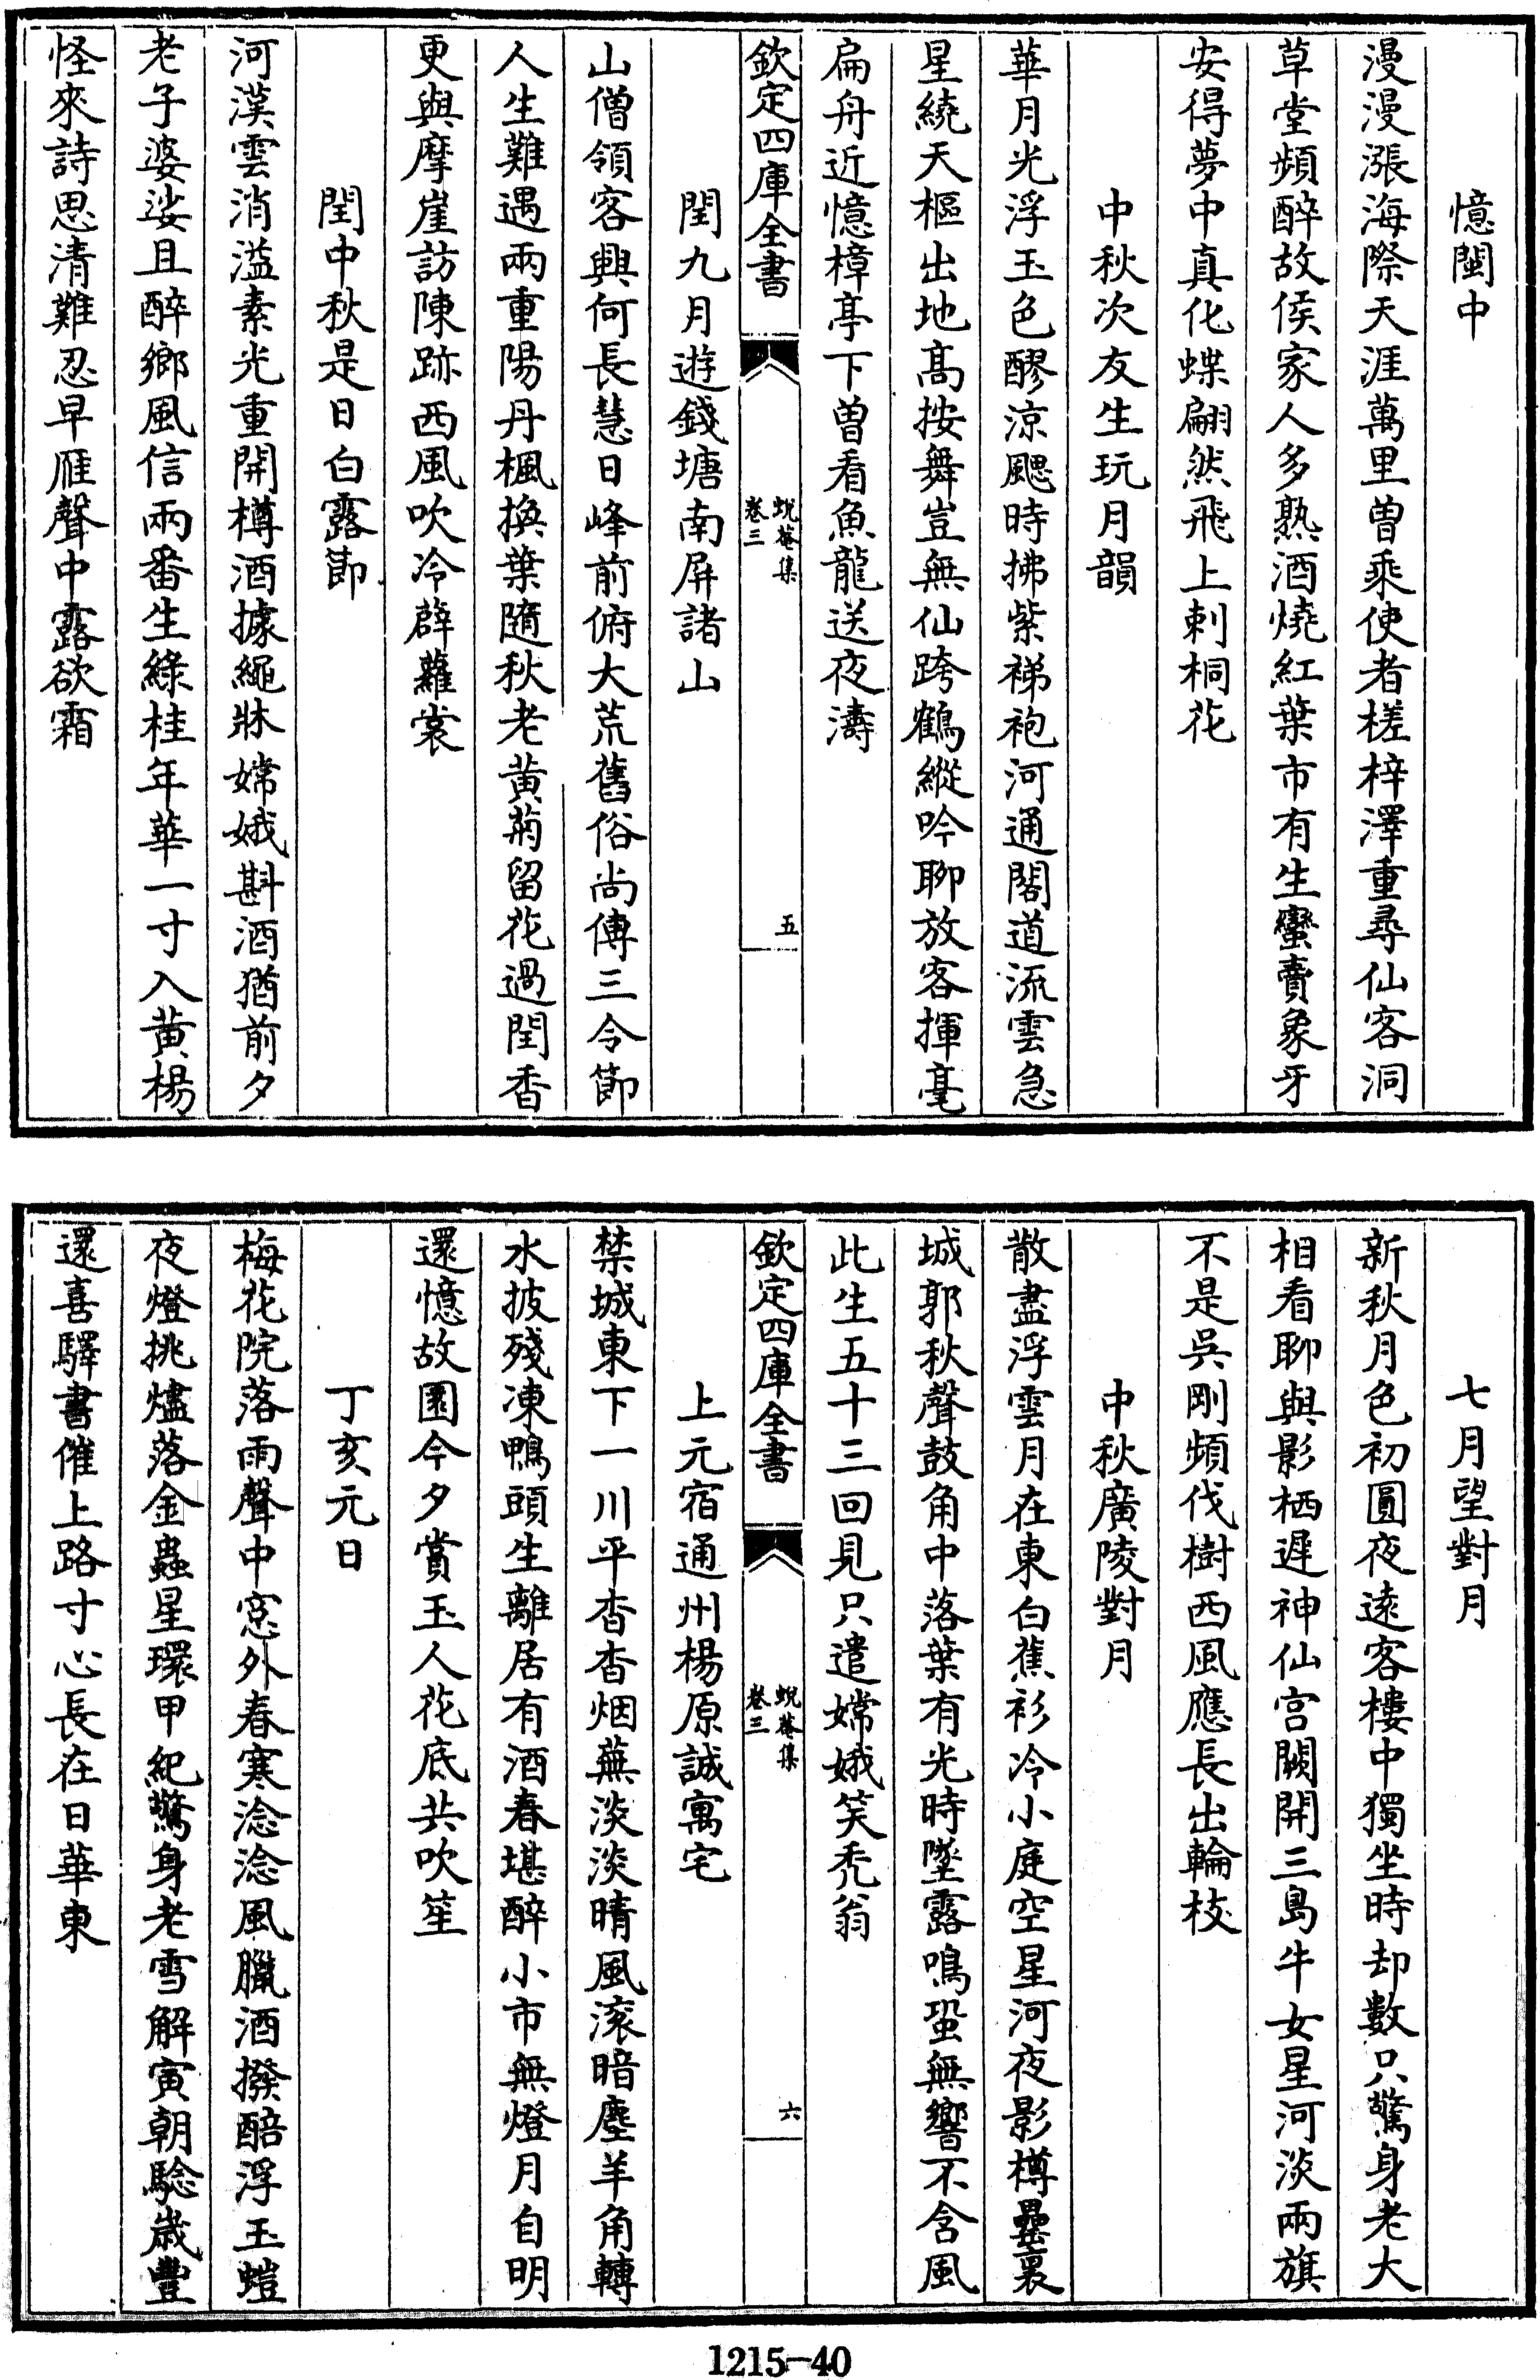 憶閩中
漫漫漲海際天涯萬里曾乘使者槎梓澤重尋仙客洞
草堂頻醉故侯家人多熟酒燒紅葉市有生蠻賣象牙
安得夢中真化蝶翩然飛上刺桐花
中秋次友生玩月韻
華月光浮玉色醪涼颸時拂紫褅袍河通閣道流雲急
星繞天樞出地高按舞豈無仙跨鶴縱吟聊放客揮毫
扁舟近憶樟亭下曾看魚龍送夜濤
欽定四庫全書
蛻菴集
卷三
五
閏九月遊錢塘南屏諸山
山僧領客興何長慧日峰前俯大荒舊俗尚傳三令節
人生難遇兩重陽丹楓換葉隨秋老黃菊留花過閏香
更與摩崖訪陳跡西風吹冷薜蘿裳
閏中秋是日白露節
河漢雲消溢素光重開樽酒據繩牀嫦娥斟酒猶前夕
老子婆娑且醉鄉風信兩番生綠桂年華一寸入黃楊
怪來詩思清難忍早雁聲中露欲霜
七月望對月
新秋月色初圓夜遠客樓中獨坐時却數只驚身老大
相看聊與影栖遲神仙宮闕開三島牛女星河淡兩旗
不是吳剛頻伐樹西風應長出輪枝
中秋廣陵對月
散盡浮雲月在東白蕉衫冷小庭空星河夜影樽罍裏
城郭秋聲鼓角中落葉有光時墜露鳴蛩無響不含風
此生五十三回見只遣嫦娥笑禿翁
欽定四庫全書
蛻菴集
卷三
六
上元宿通州楊原誠寓宅
禁城東下一川平杳杳烟蕪淡淡晴風滚暗塵羊角轉
水披殘凍鴨頭生離居有酒春堪醉小市無燈月自明
還憶故園今夕賞玉人花底共吹笙
丁亥元日
梅花院落雨聲中窓外春寒淰淰風臘酒撥醅浮玉螘
夜燈挑燼落金蟲星環甲紀驚身老雪解寅朝驗歲豐
還喜驛書催上路寸心長在日華東
1215-40